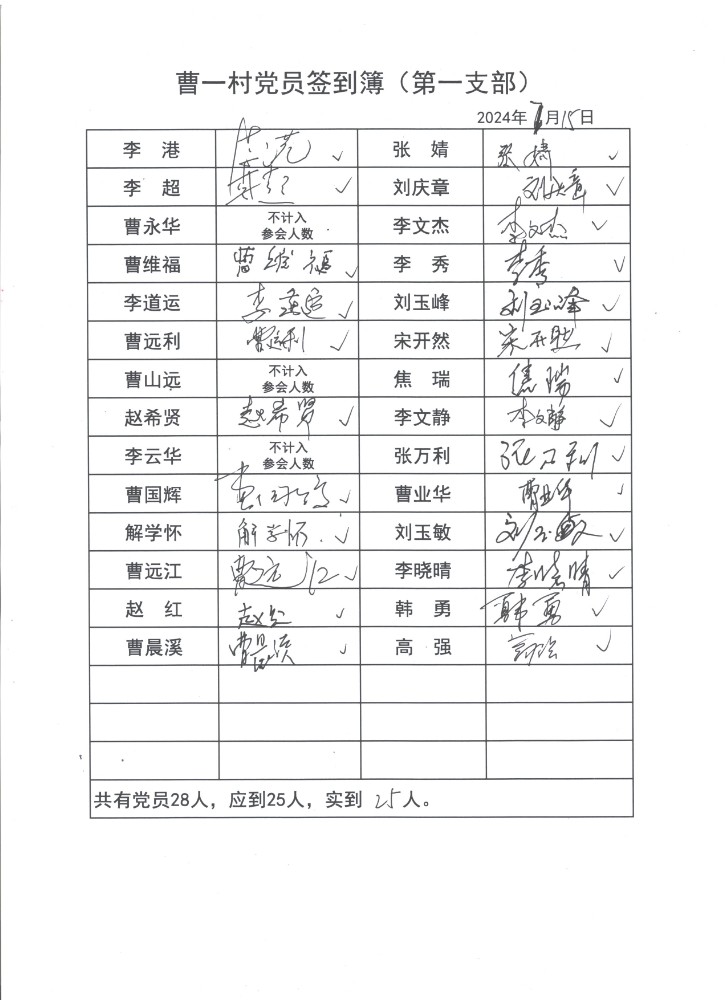 曹一村党员签到簿（第一支部）
2024年7月15日
李 港 李港 ✓ 张 婧 张婧 ✓
李 超 李超 ✓ 刘庆章 刘庆章 ✓
曹永华 不计入 参会人数 李文杰 李文杰 ✓
曹维福 曹维福 ✓ 李 秀 李秀 ✓
李道运 李道运 ✓ 刘玉峰 刘玉峰 ✓
曹远利 曹远利 ✓ 宋开然 宋开然 ✓
曹山远 不计入 参会人数 焦 瑞 焦瑞 ✓
赵希贤 赵希贤 ✓ 李文静 李文静 ✓
李云华 不计入 参会人数 张万利 张万利 ✓
曹国辉 曹国辉 ✓ 曹业华 曹业华 ✓
解学怀 解学怀 ✓ 刘玉敏 刘玉敏 ✓
曹远江 曹远江 ✓ 李晓晴 李晓晴 ✓
赵 红 赵红 ✓ 韩 勇 韩勇 ✓
曹晨溪 曹晨溪 ✓ 高 强 高强 ✓
共有党员28人，应到25人，实到 25人。